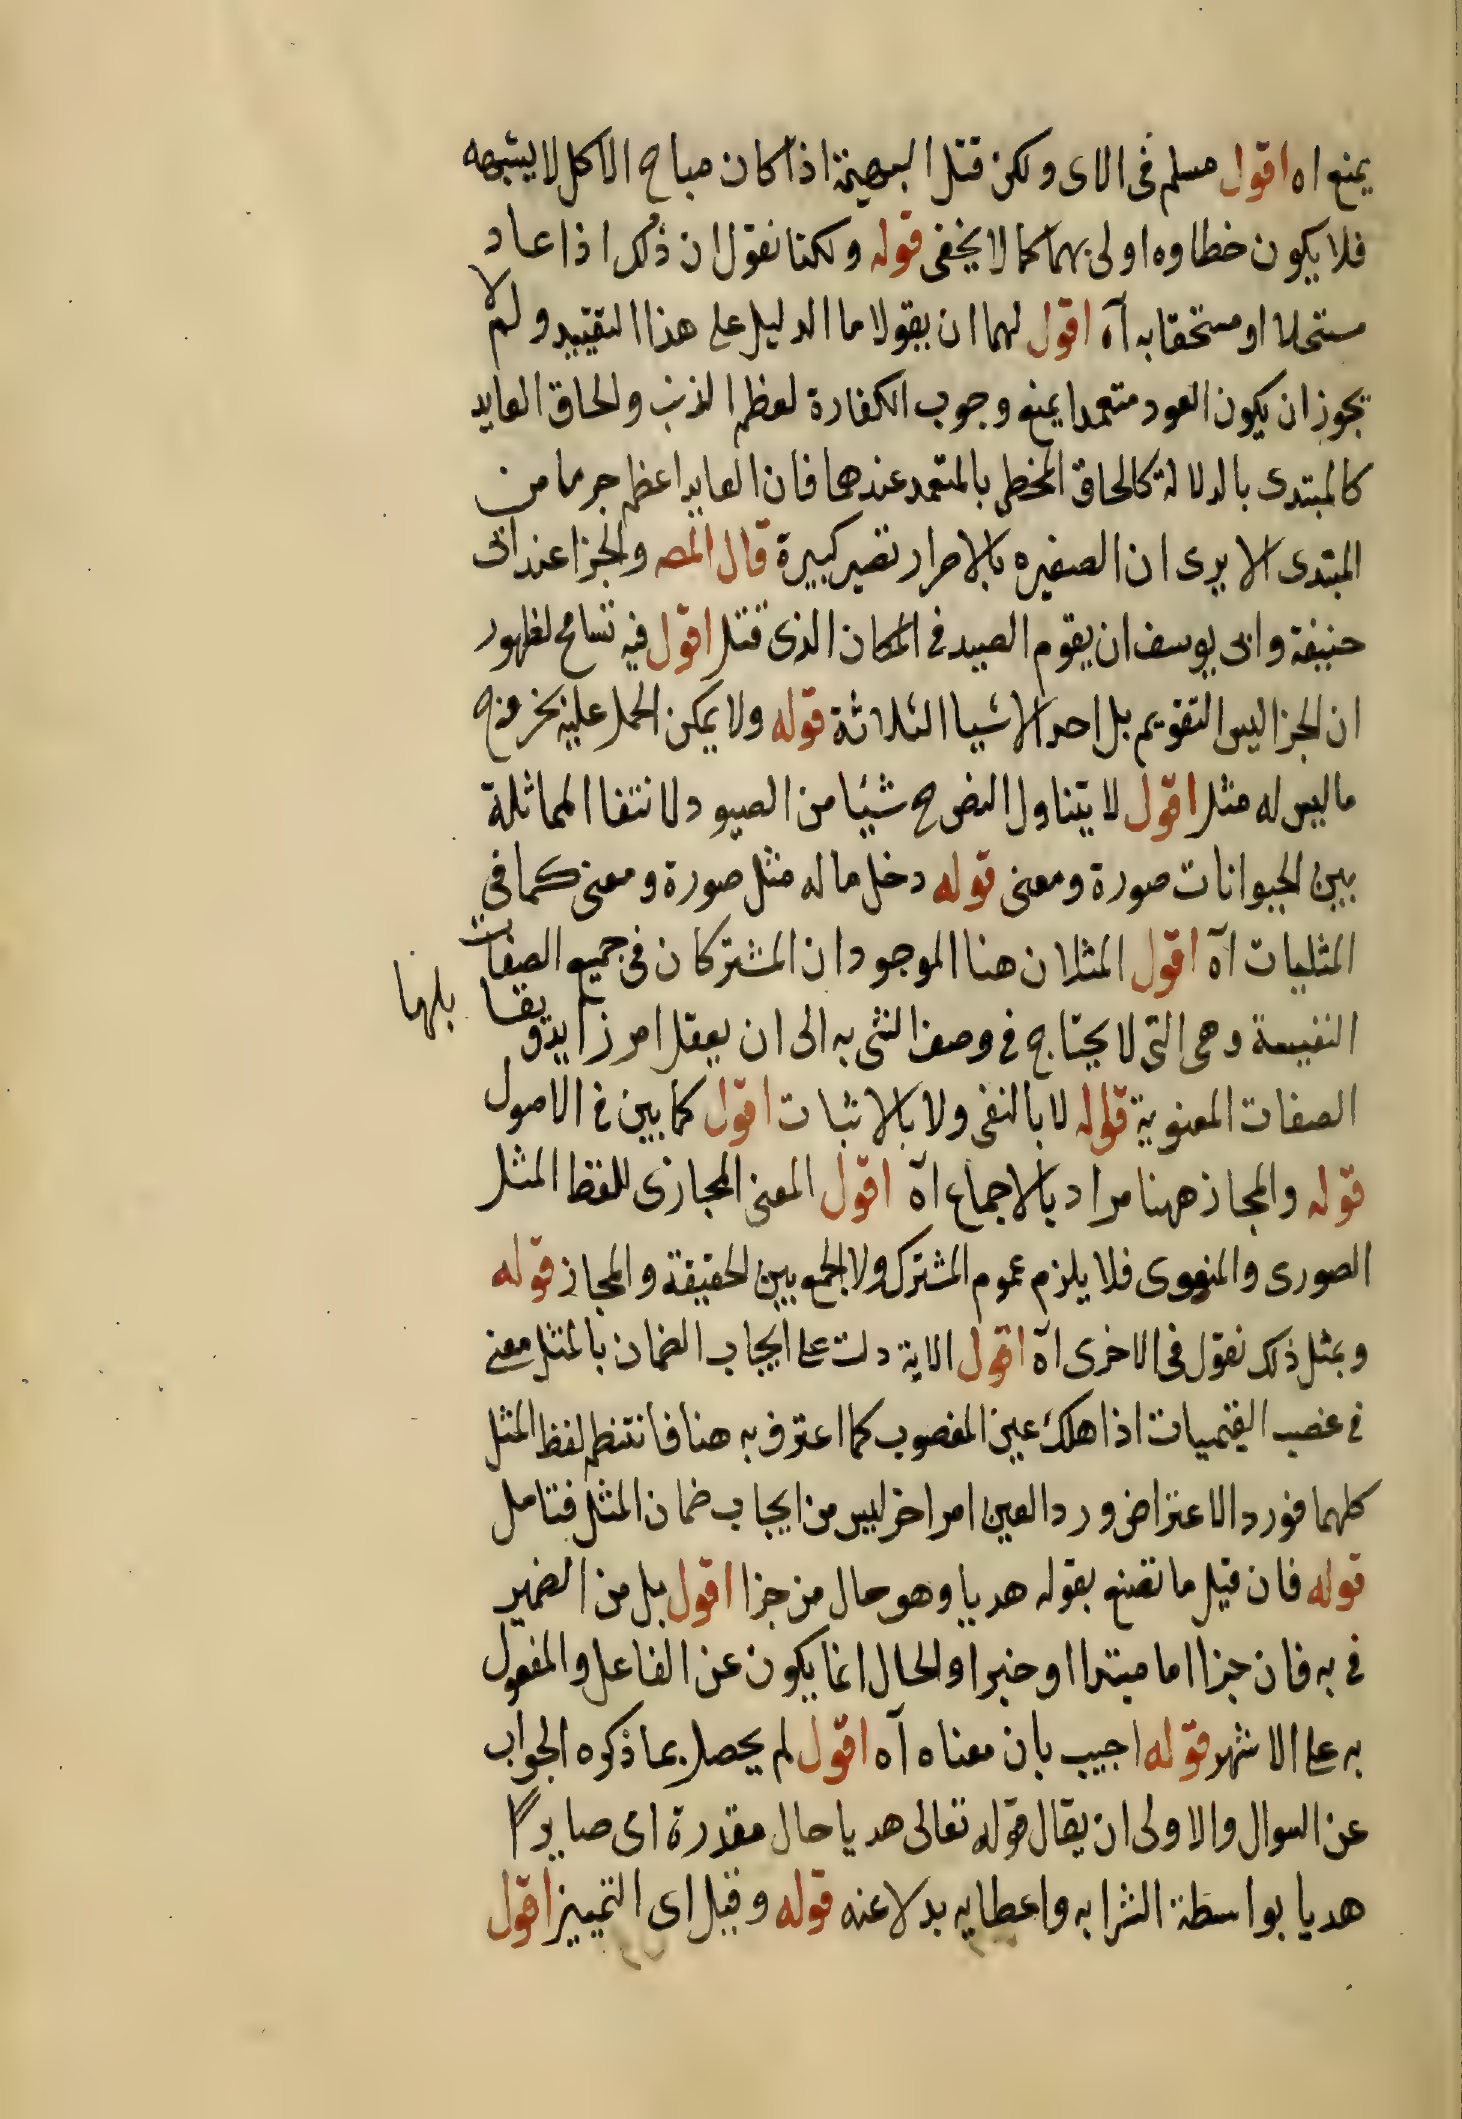 يمنع اه اقول مسلم فى الاى ولكن قتل البهيمة اذا كان مباح الاكل لا يشبهه
فلا يكون خطاوه اولى بهما كما لا يخفى قوله ولكنا نقول ان ذلك اذا عاد
مستحلا او مستخفا به آه اقول لهما ان يقولا ما الدليل على هذا التقييد ولم لا
يجوز ان يكون العود متعمدا يمنع وجوب الكفارة لعظم الذنب والحاق العايد
كالمبتدى بالدلالة كالحاق المخطى بالمتعمد عندهما فان العايد اعظم جرما من
المبتدى الا يرى ان الصغيره بالاصرار تصير كبيرة قال المصـ والجزا عند ابى
حنيفة وابى يوسف ان يقوم الصيد فى المكان الذى قتل اقول فيه تسامح لظهور
ان الجزا ليس التقويم بل احد الاشيا الثلاثة قوله ولا يمكن الحمل عليه لخروج
ما ليس له مثل اقول لا يتناول النص ح شيئا من الصيود لانتفا المماثلة
بين الحيوانات صورة ومعنى قوله دخل ما له مثل صورة ومعنى كما فى
المثليات آه اقول المثلان هنا الموجودان المشتركان فى جميع الصفات
النفيسة وهى التى لا يحتاج فى وصف الشى به الى ان يعقل امر زايد ويقا بلها
الصفات المعنوية قوله لا بالنفى ولا بالاثبات اقول كما بين فى الاصول
قوله والمجاز ههنا مراد بالاجماع آه اقول المعنى المجازى للفظ المثل
الصورى والمعنوى فلا يلزم عموم المشترك ولا الجمع بين الحقيقة والمجاز قوله
وبمثل ذلك نقول فى الاخرى آه اقول الاية دلت على ايجاب الضمان بالمثل معنى
فى غصب القيميات اذا هلك عين المغصوب كما اعترف به هنا فانتظم لفظ المثل
كلهما فورد الاعتراض ورد العين امر اخر ليس من ايجاب ضمان المثل فتامل
قوله فان قيل ما تصنع بقوله هديا وهو حال من جزا اقول بل من الضمير
فى به فان جزا اما مبتدا او خبر او الحال انما يكون عن الفاعل والمفعول
به على الاشهر قوله اجيب بان معناه آه اقول لم يحصل بما ذكره الجواب
عن السوال والاولى ان يقال قوله تعالى هديا حال مقدرة اى صايرا
هديا بواسطة الشرا به واعطايه بدلا عنه قوله وقيل اى التمييز اقول